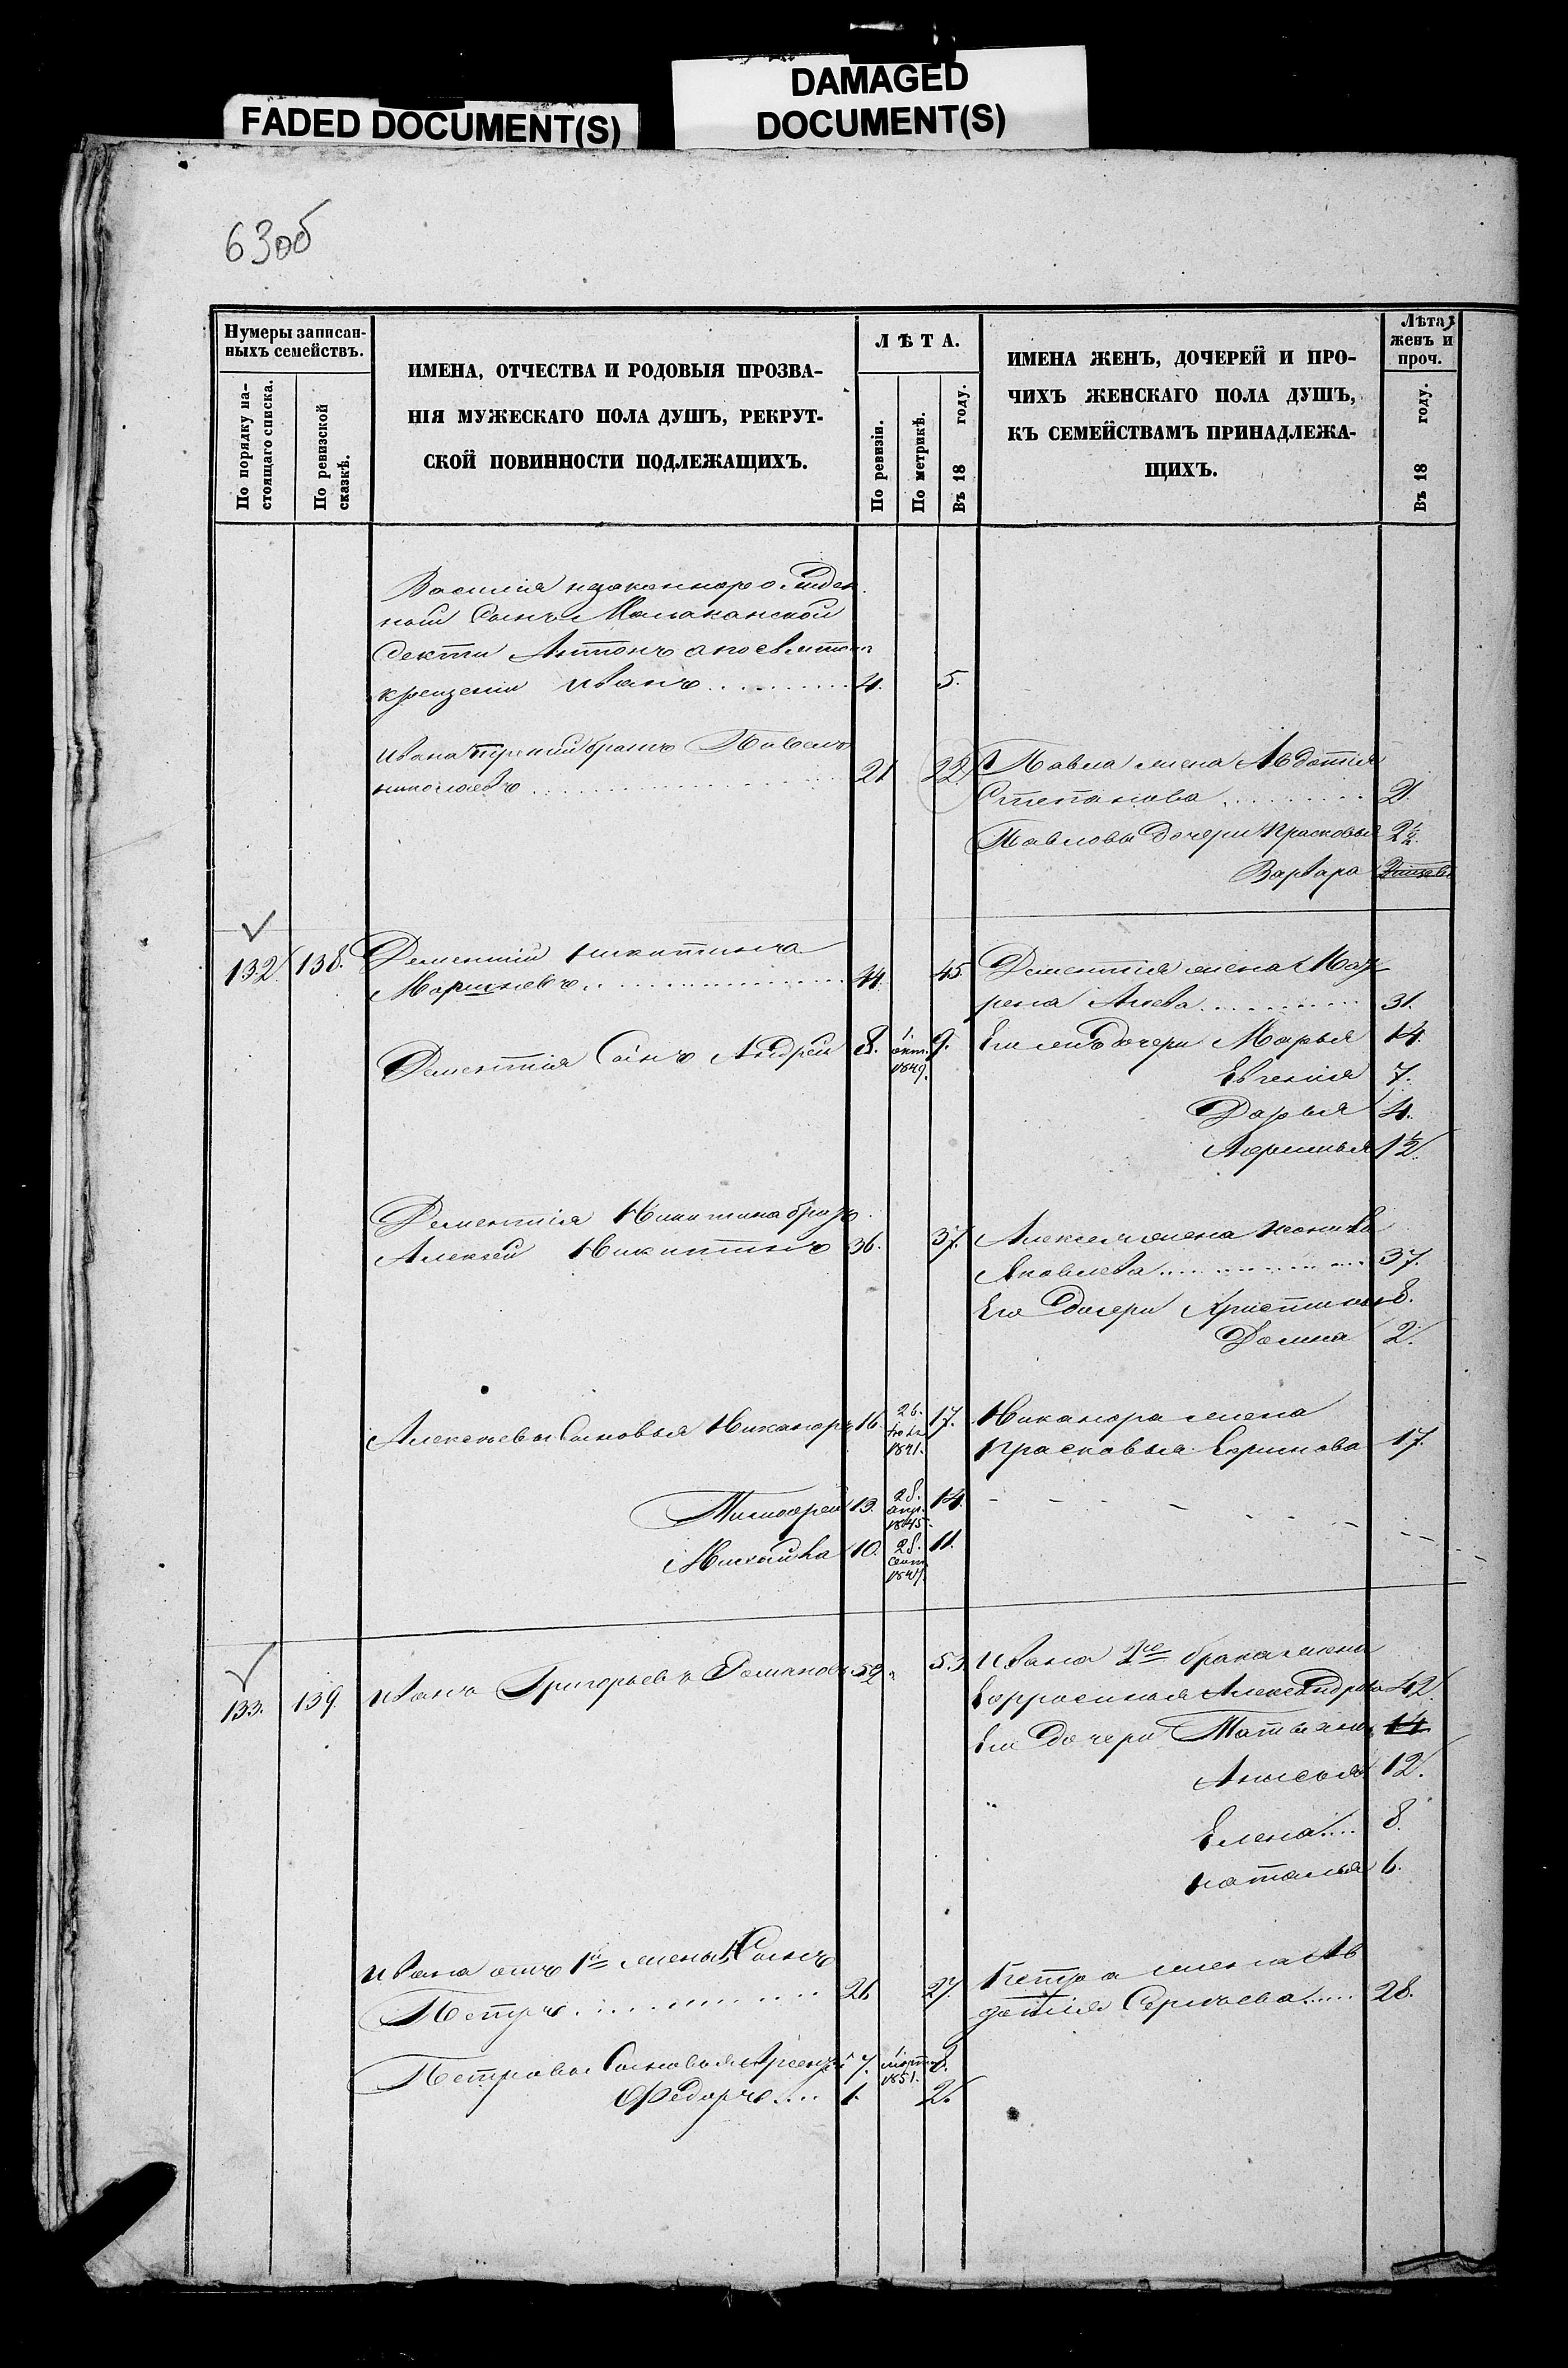 FADED DOCUMENT(S)
DAMAGED
DOCUMENT(S)
63об
Нумеры записан-
ныхъ семействъ.
По порядку на-
стоящаго списка.
По ревизской
сказкѣ.
ИМЕНА, ОТЧЕСТВА И РОДОВЫЯ ПРОЗВА-
НІЯ МУЖЕСКАГО ПОЛА ДУШЪ, РЕКРУТ-
СКОЙ ПОВИННОСТИ ПОДЛЕЖАЩИХЪ.
ЛѢТА.
По ревизіи.
По метрикѣ.
Въ 18 году.
ИМЕНА ЖЕНЪ, ДОЧЕРЕЙ И ПРО-
ЧИХЪ ЖЕНСКАГО ПОЛА ДУШЪ,
КЪ СЕМЕЙСТВАМЪ ПРИНАДЛЕЖА-
ЩИХЪ.
Лѣта
женъ и
проч.
Въ 18 году.
Василія незаконнорожден
ной Сынъ Малаканской
Секты Антонъ а по святом
крещении Иванъ 4. 5.
Ивана третий братъ Павелъ
21 22 Павла жена Авдотья
Степанова 21.
Павловы дочери Прасковья 2½
Варвара
132 138. Дементий Никитинъ
44. 45 Дементия жена Мав
рена 31.
Дементия Сынъ Андрей 8. 1. окт. 1849. 9. дочери Марья 14.
Евгения 7.
Дарья 4.
1½
Дементия Никитина братъ
Алексей Никитинъ 36. 37. Алексея жена
Яковлева 37.
Его дочери Христинья 8.
Домна 2.
Алексеевы Сыновья Никаноръ 16. 26. 1841. 17. Никанора жена
Прасковья Ефимова 17.
Тимофей 13. 28. 1845 14.
10. 28. Сент. 1847. 11.
133. 139 Иванъ Григорьевъ Романовъ 52 53 Ивана 2го брака жена
Ефросинья Александрова 42.
Его дочери Татьяна 14
Анисья 12.
Елена 8.
Наталья 6.
Ивана отъ 1й жены Сынъ
Петръ 26 27. Петра жена Ав
дотия Сергеева 28.
Петровы Сыновья Арсентий 7. 1 март. 1851. 8.
Федоръ 1. 2.